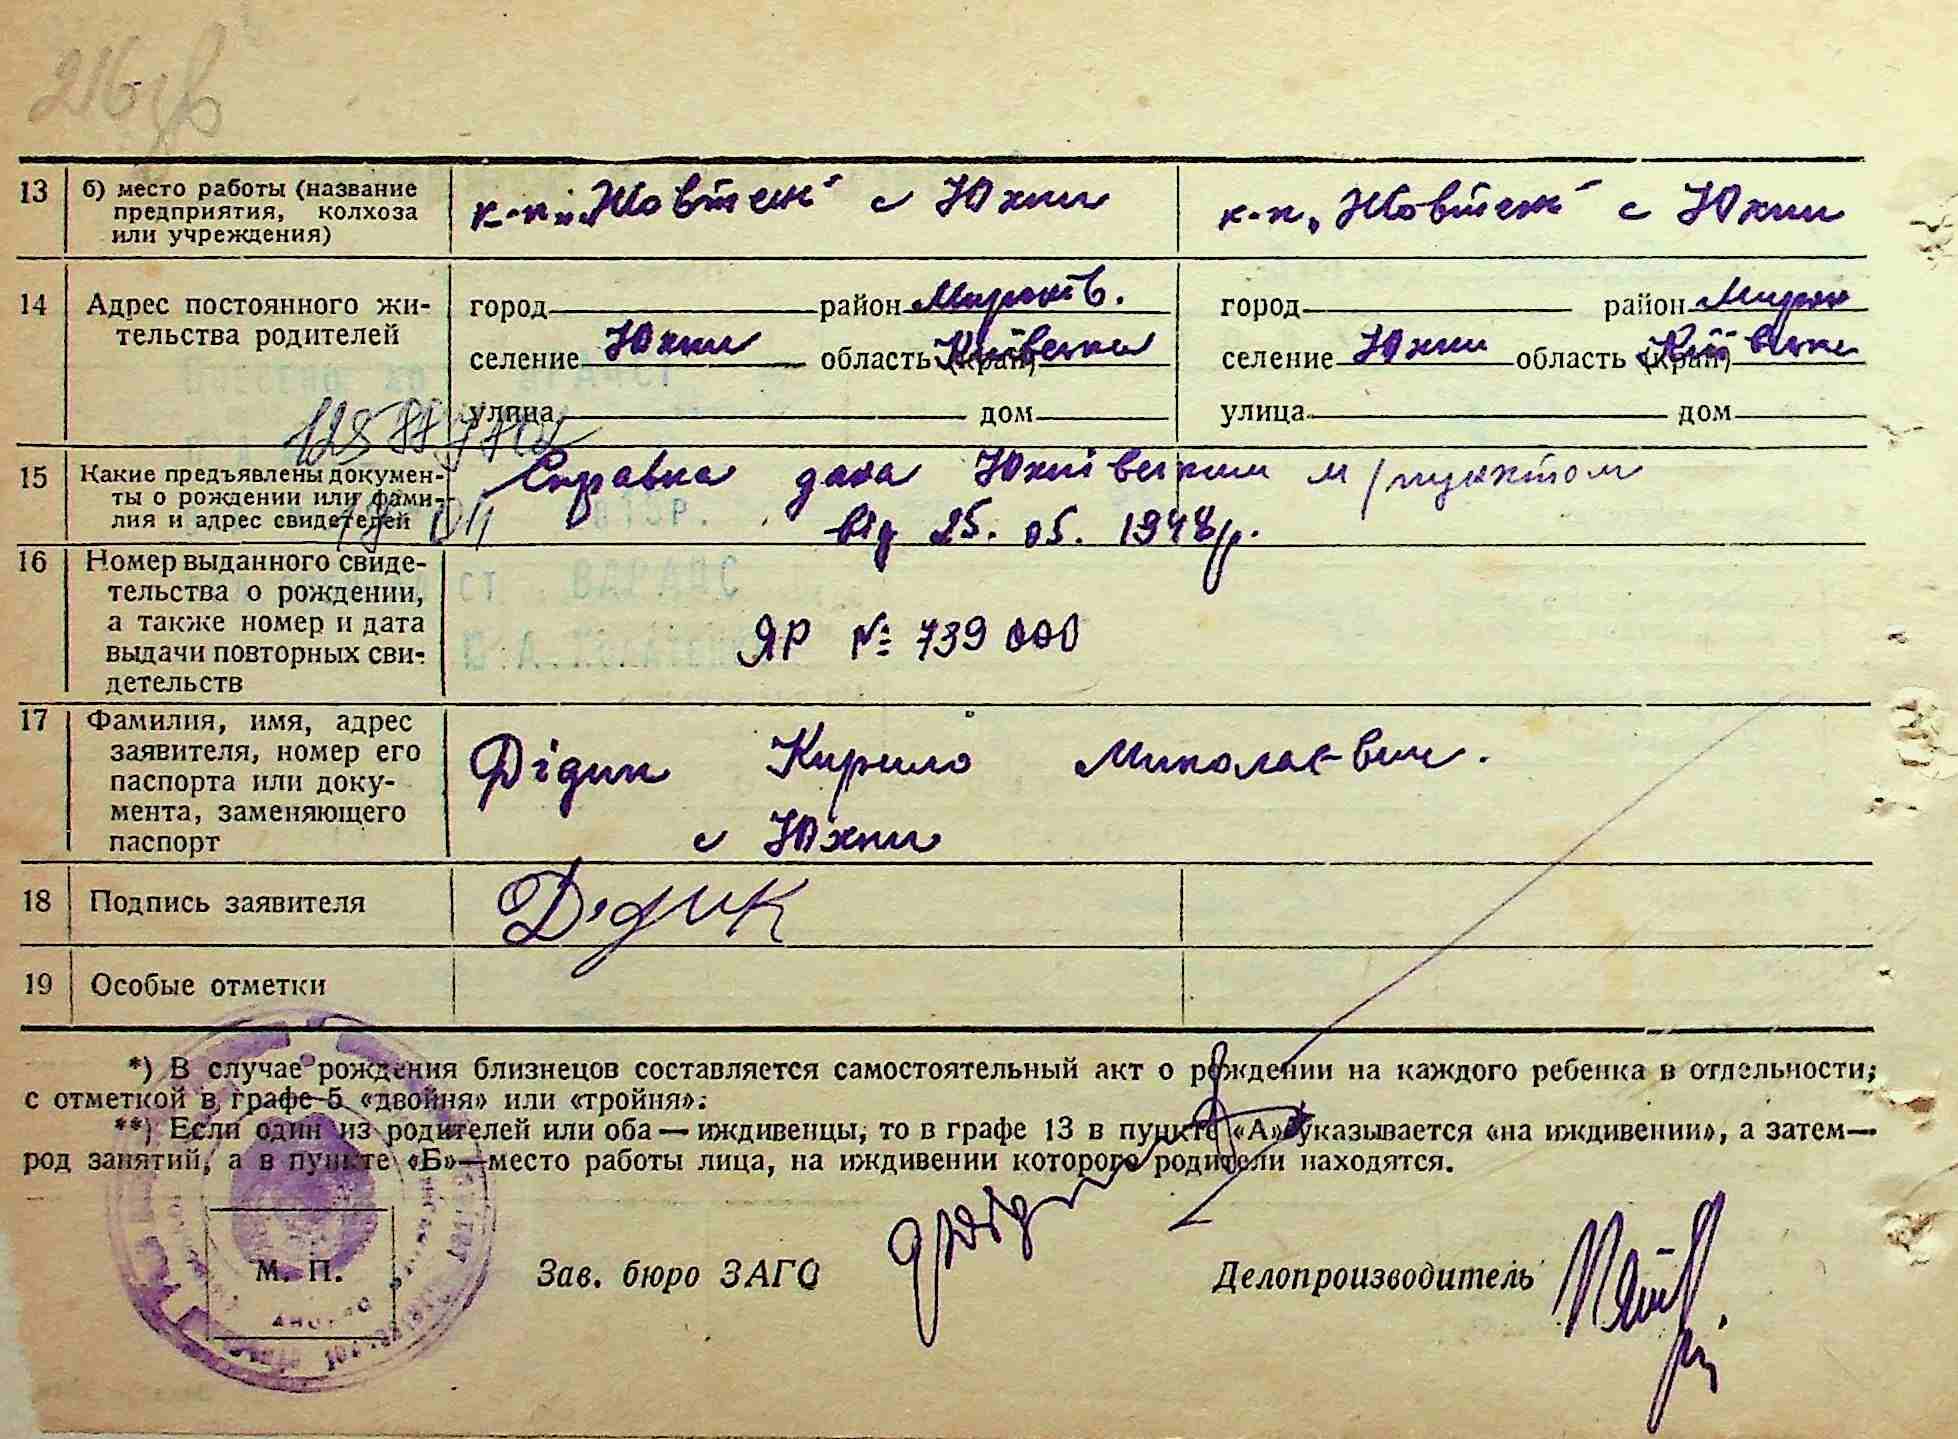 13 б) место работы (название предприятия, колхоза или учреждения)
к-п „Жовтень“ с Юхни
к-п „Жовтень“ с Юхни
14 Адрес постоянного жительства родителей
город район Миронів.
селение Юхни область (край) Київська
улица дом
город район Мирон
селение Юхни область (край) Київська
улица дом
15 Какие предъявлены документы о рождении или фамилия и адрес свидетелей
Справка дана Юхнівським м/пунктом
від 25. 05. 1948р.
16 Номер выданного свидетельства о рождении, а также номер и дата выдачи повторных свидетельств
ЯР № 739000
17 Фамилия, имя, адрес заявителя, номер его паспорта или документа, заменяющего паспорт
Дідик Кирило Миколаєвич.
с Юхни
18 Подпись заявителя
Дідик
19 Особые отметки
*) В случае рождения близнецов составляется самостоятельный акт о рождении на каждого ребенка в отдельности,
с отметкой в графе 5 «двойня» или «тройня».
**) Если один из родителей или оба — иждивенцы, то в графе 13 в пункте «А» указывается «на иждивении», а затем—
род занятий, а в пункте «Б»—место работы лица, на иждивении которого родители находятся.
М. П.
Зав. бюро ЗАГС
Делопроизводитель